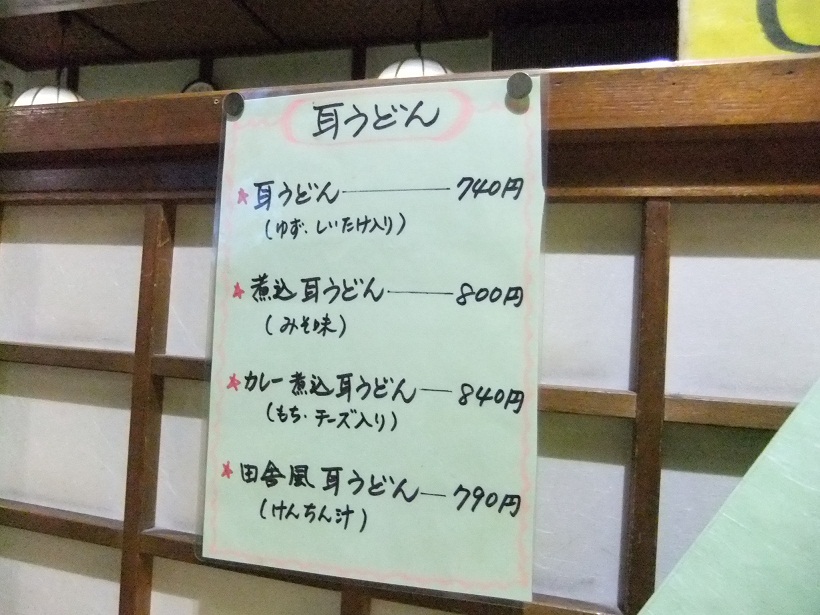 耳うどん
★耳うどん――740円
(ゆず・しいたけ入り)
★煮込耳うどん――800円
(みそ味)
★カレー煮込耳うどん―840円
(もち・チーズ入り)
★田舎風耳うどん―790円
(けんちん汁)